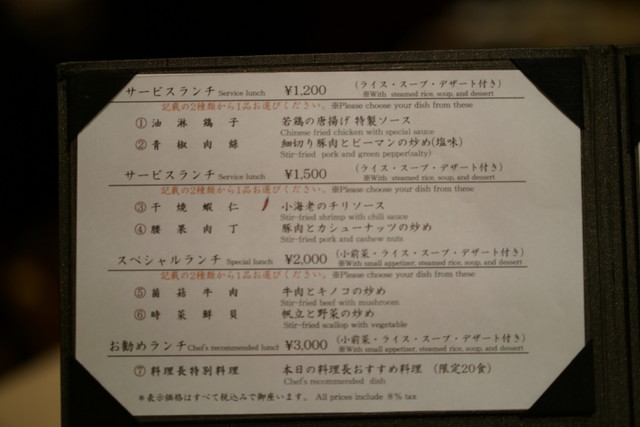 サービスランチ Service lunch ¥1,200 (ライス・スープ・デザート付き)
※With steamed rice, soup, and dessert
記載の2種類から1品お選びください。※Please choose your dish from these
① 油淋鶏子 若鶏の唐揚げ 特製ソース
Chinese fried chicken with special sauce
② 青椒肉絲 細切り豚肉とピーマンの炒め(塩味)
Stir-fried pork and green pepper(salty)
サービスランチ Service lunch ¥1,500 (ライス・スープ・デザート付き)
※With steamed rice, soup, and dessert
③ 干焼蝦仁 小海老のチリソース
Stir-fried shrimp with chili sauce
④ 腰果肉丁 豚肉とカシューナッツの炒め
Stir-fried pork and cashew nuts
スペシャルランチ Special lunch ¥2,000 (小前菜・ライス・スープ・デザート付き)
※With small appetizer, steamed rice, soup, and dessert
記載の2種類から1品お選びください。※Please choose your dish from these
⑤ 菌菇牛肉 牛肉とキノコの炒め
Stir-fried beef with mushroom
⑥ 時菜鮮貝 帆立と野菜の炒め
Stir-fried scallop with vegetable
お勧めランチ Chef's recommended lunch ¥3,000 (小前菜・ライス・スープ・デザート付き)
※With small appetizer, steamed rice, soup, and dessert
⑦ 料理長特別料理 本日の料理長おすすめ料理 (限定20食)
Chef's recommended dish
＊表示価格はすべて税込みで御座います。 All prices include 8% tax